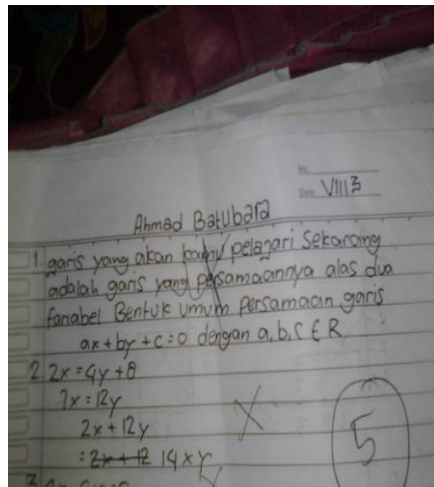 No
Date VIII3
Ahmad Batubara
1. garis yang akan kamu pelajari Sekarang
adalah garis yang persamaannya alas dua
fariabel Bentuk Umum Persamaan garis
ax + by + c = 0 dengan a, b, c ∈ R
2. 2x = 4y + 8
7x = 12y
2x + 12y
= 2x + 12 14xy
5
3.